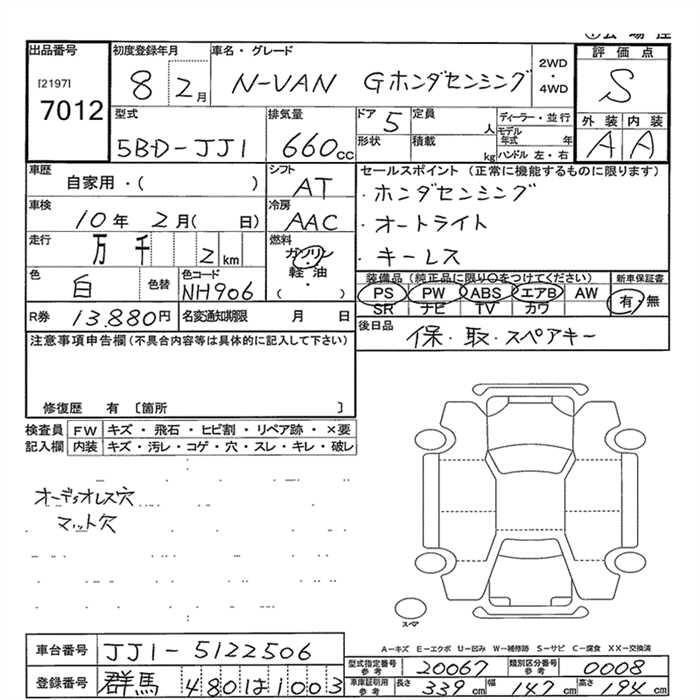 出品番号
[2197]
7012
初度登録年月
8 2月
車名・グレード
N-VAN Gホンダセンシング
2WD
・
4WD
評価点
S
外装 内装
A A
型式
5BD-JJ1
排気量
660cc
ドア 5
形状
定員 人
積載 kg
ディーラー・並行
モデル年式 年
ハンドル 左・右
車歴
自家用・( )
シフト
AT
車検
10年 2月( 日)
冷房
AAC
走行
万 千 2 km
燃料
ガソリン
軽油
( ・ )
色
白
色替
色コード
NH906
R券 13.880円
名変通知期限 月 日
セールスポイント (正常に機能するものに限ります)
・ホンダセンシング
・オートライト
・キーレス
装備品 (純正品に限り○をつけてください)
新車保証書
PS PW ABS エアB AW
SR ナビ TV カワ
有・無
後日品
保・取・スペアキー
注意事項申告欄(不具合内容等は具体的に記入して下さい)
修復歴 有 〔箇所 〕
検査員
記入欄
FW キズ・飛石・ヒビ割・リペア跡・×要
内装 キズ・汚レ・コゲ・穴・スレ・キレ・破レ
オーディオレス穴
マット穴
スペア
A…キズ E…エクボ U…凹み W…補修跡 S…サビ C…腐食 XX…交換済
車台番号 JJ1-5122506
登録番号 群馬 480は1003
型式指定番号 参考 20067
類別区分番号 参考 0008
車庫証明用 参考 長さ 339cm 幅 147cm 高さ 194cm